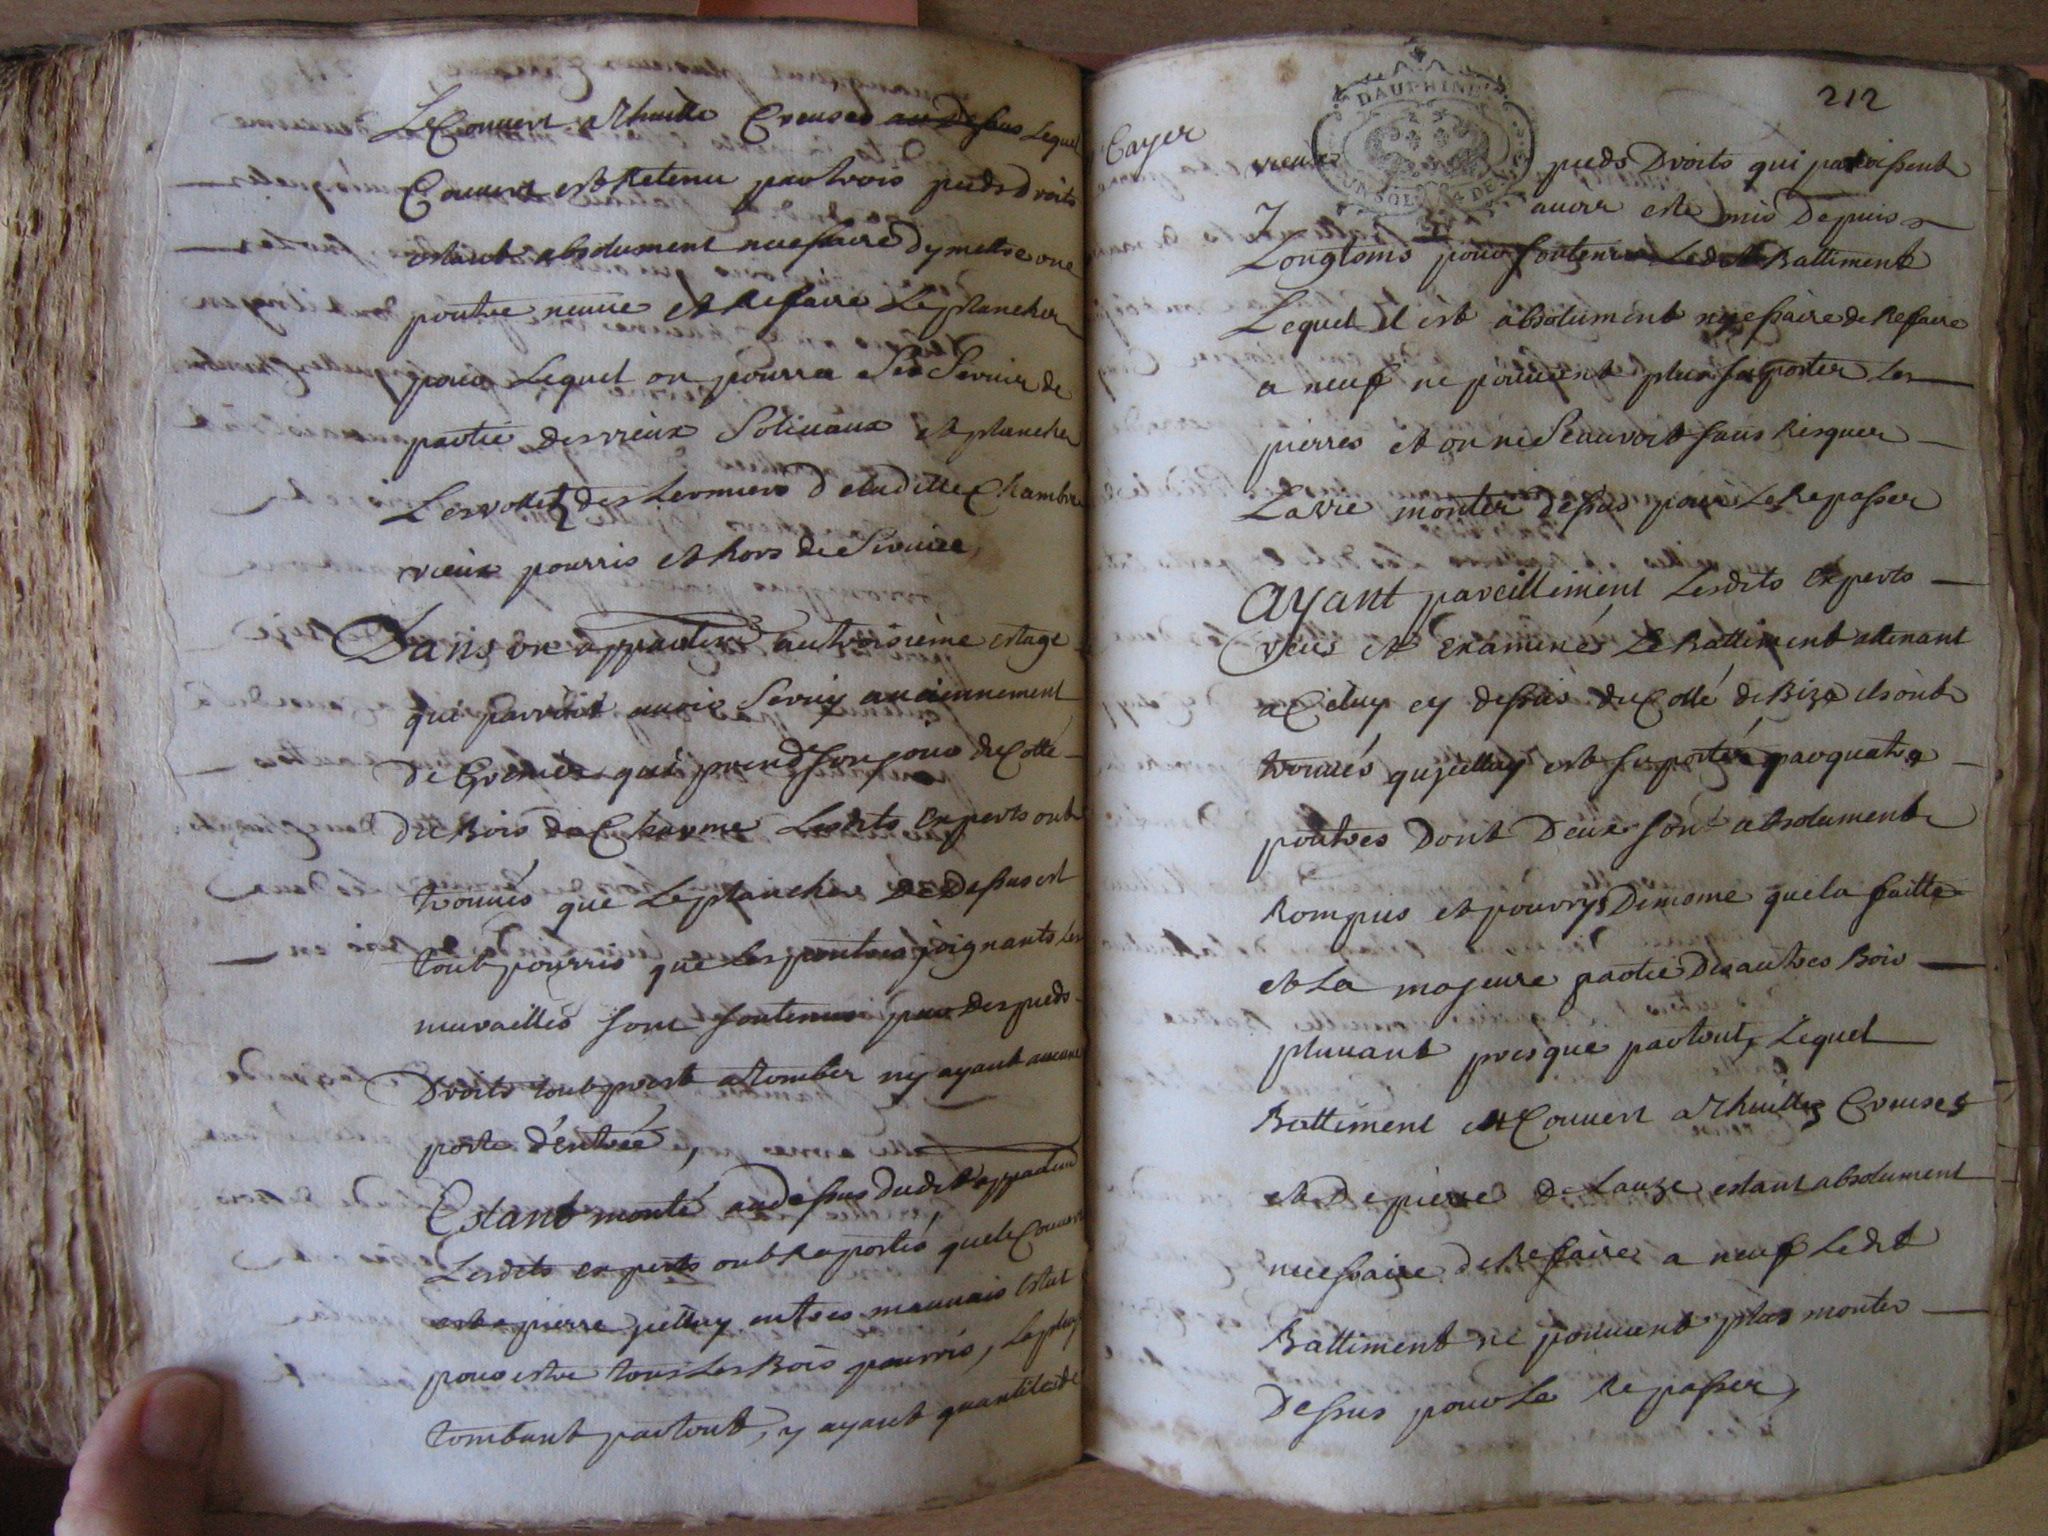 Le Couvert A thuille Creuses au Dessus Lequel
Couvert est Retenu par trois pieds droits
estant absolument necessaire d'y mettre une
poutre neuve et Reffaire Le plancher
pour Lequel on pourra Ses Servir de
partie des vieux Solivaux et plancher
Les vollets des Lermiers de laditte Chambre
vieux pourris et hors de Service,
Dans un appartem autroisieme estage
qui parroit avoir Servy anciennement
De Grenier qui prend son jour du Cotté
Du Bois de Charme Lesdits experts ont
trouvés que Le plancher De Dessus est
tout pourris que Les poutres joignants Les
muraillés sont soutenus par Des pieds
Droits tout prest a Tomber ny ayant aucune
porte d'entreé,
Estant monté au dessus dudit appartem
Lesdits experts ont Raportés que le Couvert
est a pierre jcelluy entres mauvais Estat
pour estre tous Les Bois pourris, La pluye
tombant partout, y ayant quantité de
212
Cayer
DAUPHINÉ
UN SOL DEN
vieux pieds Droits qui paroissent
avoir esté mis Depuis
Longtems pour soutenir Ledit Battiment
Lequel il est absolument necessaire de Reffaire
a neuf ne pouvant plus suporter Les
pierres et on ne Scauroit sans Risquer
La vie monter dessus pour Le Repasser
Ayant pareillement Lesdits Experts
veus et Examinés Le Battiment attenant
a Celuy cy dessus du Cotté de Bize ils ont
trouvés qu'jcelluy est suporté par quatre
poutres Dont Deux sont absolument
Rompus et pourrys De meme que la faitte
et La majeure partie Des autres Bois
pluvant presque partout, Lequel
Battiment est Couvert a Thuilles Creuses
et De pierre de Lauze estant absolument
necessaire de Reffaire a neuf Ledit
Battiment ne pouvant plus monter
Dessus pour Le Repasser,